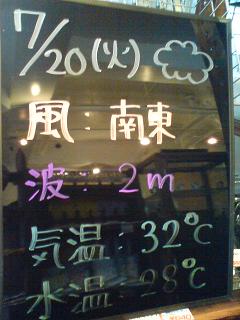 7/20(火)
風：南東
波：2m
気温：32℃
水温：28℃